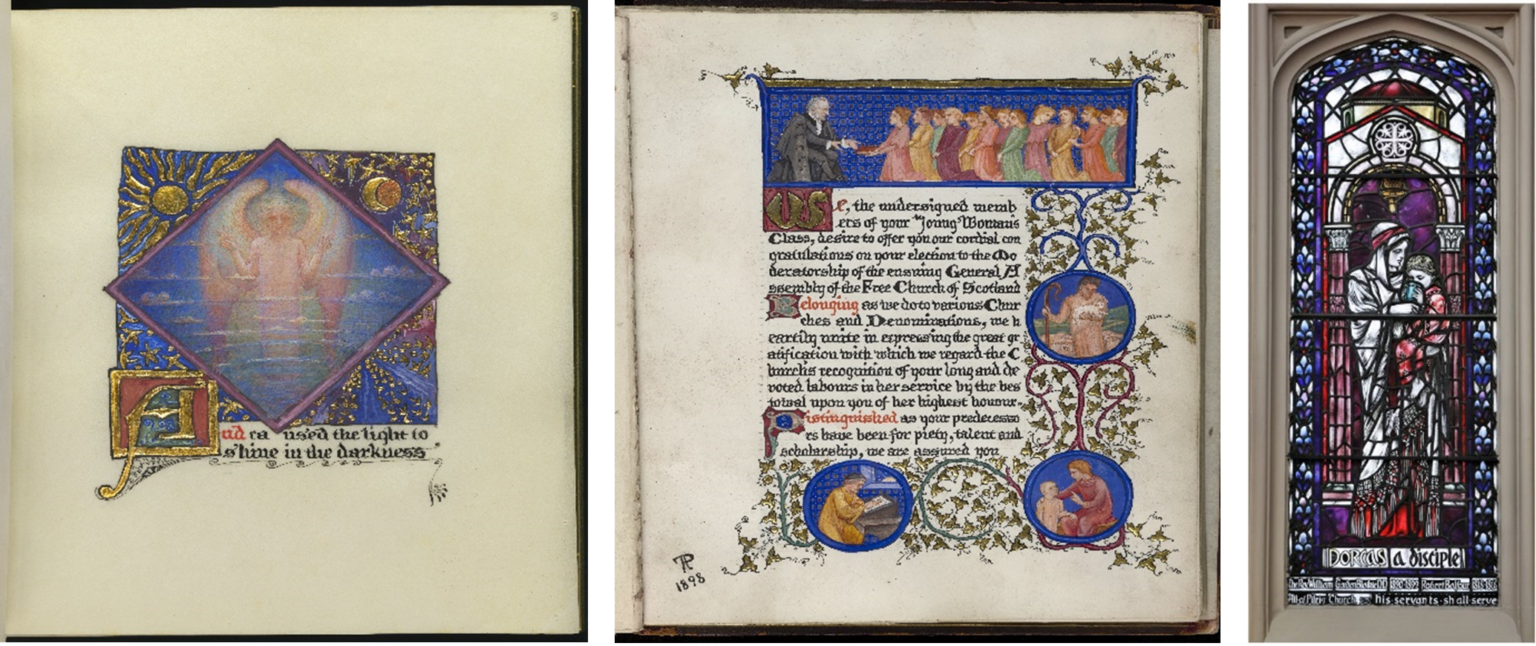 3
And ca used the light to
shine in the darkness
We, the undersigned memb
ers of your "Young Woman's
Class, desire to offer you our cordial con
gratulations on your election to the Mo
deratorship of the ensuing General A
ssembly of the Free Church of Scotland
Belonging as we do to various Chur
ches and Denominations, we h
eartily unite in expressing the great gr
atification with which we regard the C
hurchs recognition of your long and de
voted labours in her service by the bes
towal upon you of her highest honour.
Distinguished as your predecesso
rs have been for piety, talent and
scholarship, we are assured you
1898
DORCAS a disciple
The Rev William Robert Balfour
Pilrig Church his servants shall serve